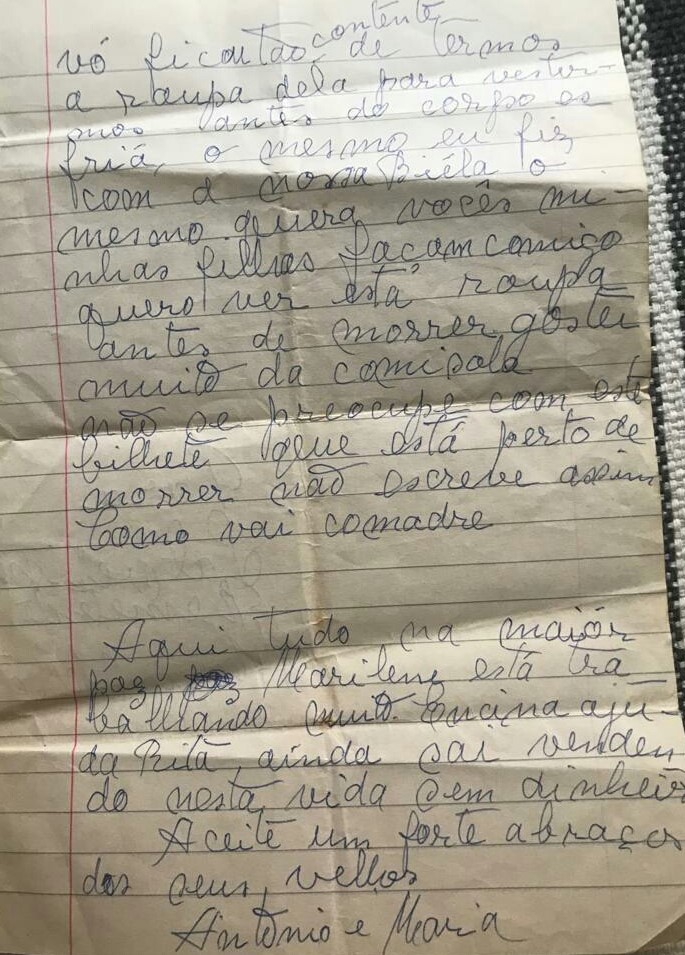 contente
vó ficou tão de termos
a roupa dela para vestir-
mos antes do corpo es
friá, o mesmo eu fiz
com a nossa Biéla o
mesmo quera vocês mi-
nhas filhas façam comigo
quero ver está roupa
antes de morrer gostei
muito da camisola
não se preocupe com este
bilhete que está perto de
morrer não escreve assim
Como vai comadre
Aqui tudo na maiór
paz Marilene está tra_
balhando muito ensina aju-
da Rita, ainda sai venden
do nesta vida sem dinheiro
Aceite um forte abraços
dos seus, velhos
Antônio e Maria